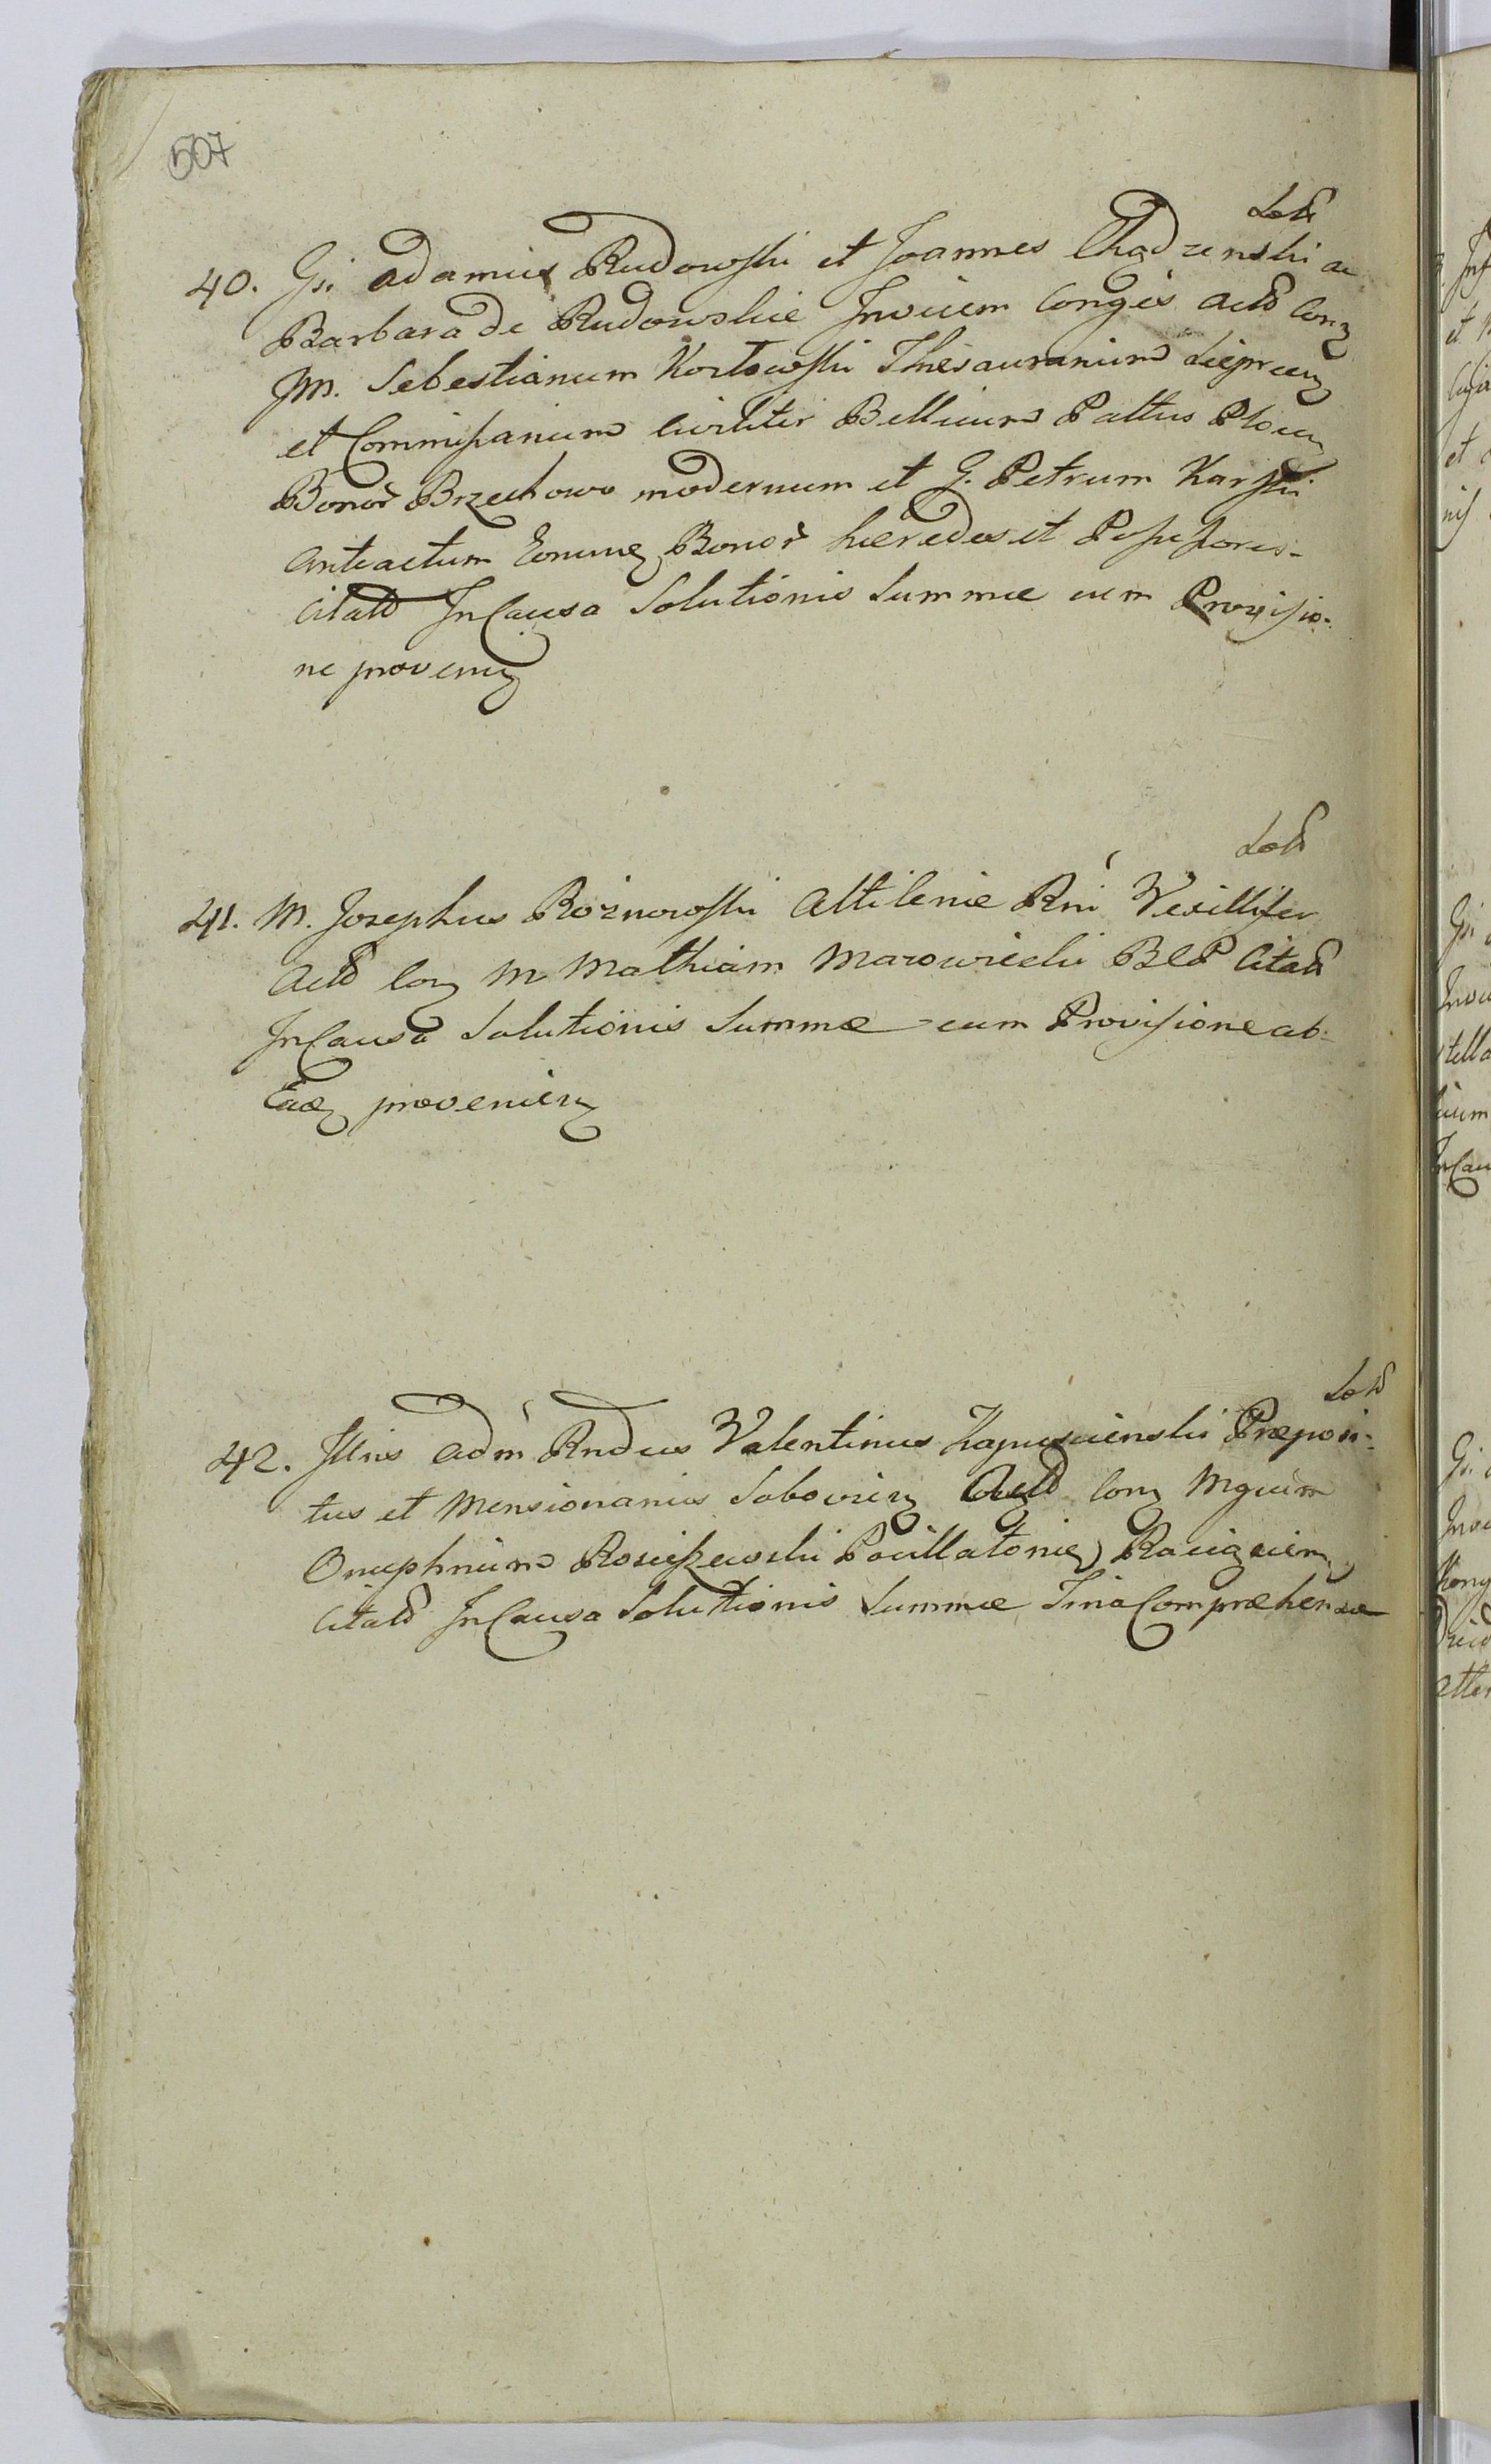 507
40. Gsi Adamus Rudowski et Joannes Chądzeński ac
Barbara de Rudowskie Invicem Conges Actō Conz
JM. Sebestianum Kozłowski Thesaurarium Liepnenz
et Commissarium Civiliter Bellicum Pattus Plocenz
Bonor Brzechowo modernum et G. Petrum Karski
anteactum Eorumq Bonor hæredes et Possessores
Citatō In Causa Solutionis Summæ cum Provisio-
ne provenienz
41. M. Josephus Roznowski Attileriæ Rni Vexillifer
Actō Conz M Mathiam Mazowiecki BCP Citatō
In Causa Solutionis Summæ cum Provisione ab
Eadz provenienz
42. Jllris adm Rndus Valentinus Kapuscienski Præposi-
tus et Mensionarius Sobovienz Actō Conz Mgcum
Onuphrium Rosciszewski Pocillatoriez Raciązienz
Citatō In Causa Solutionis Summæ Trina Compræhensæ